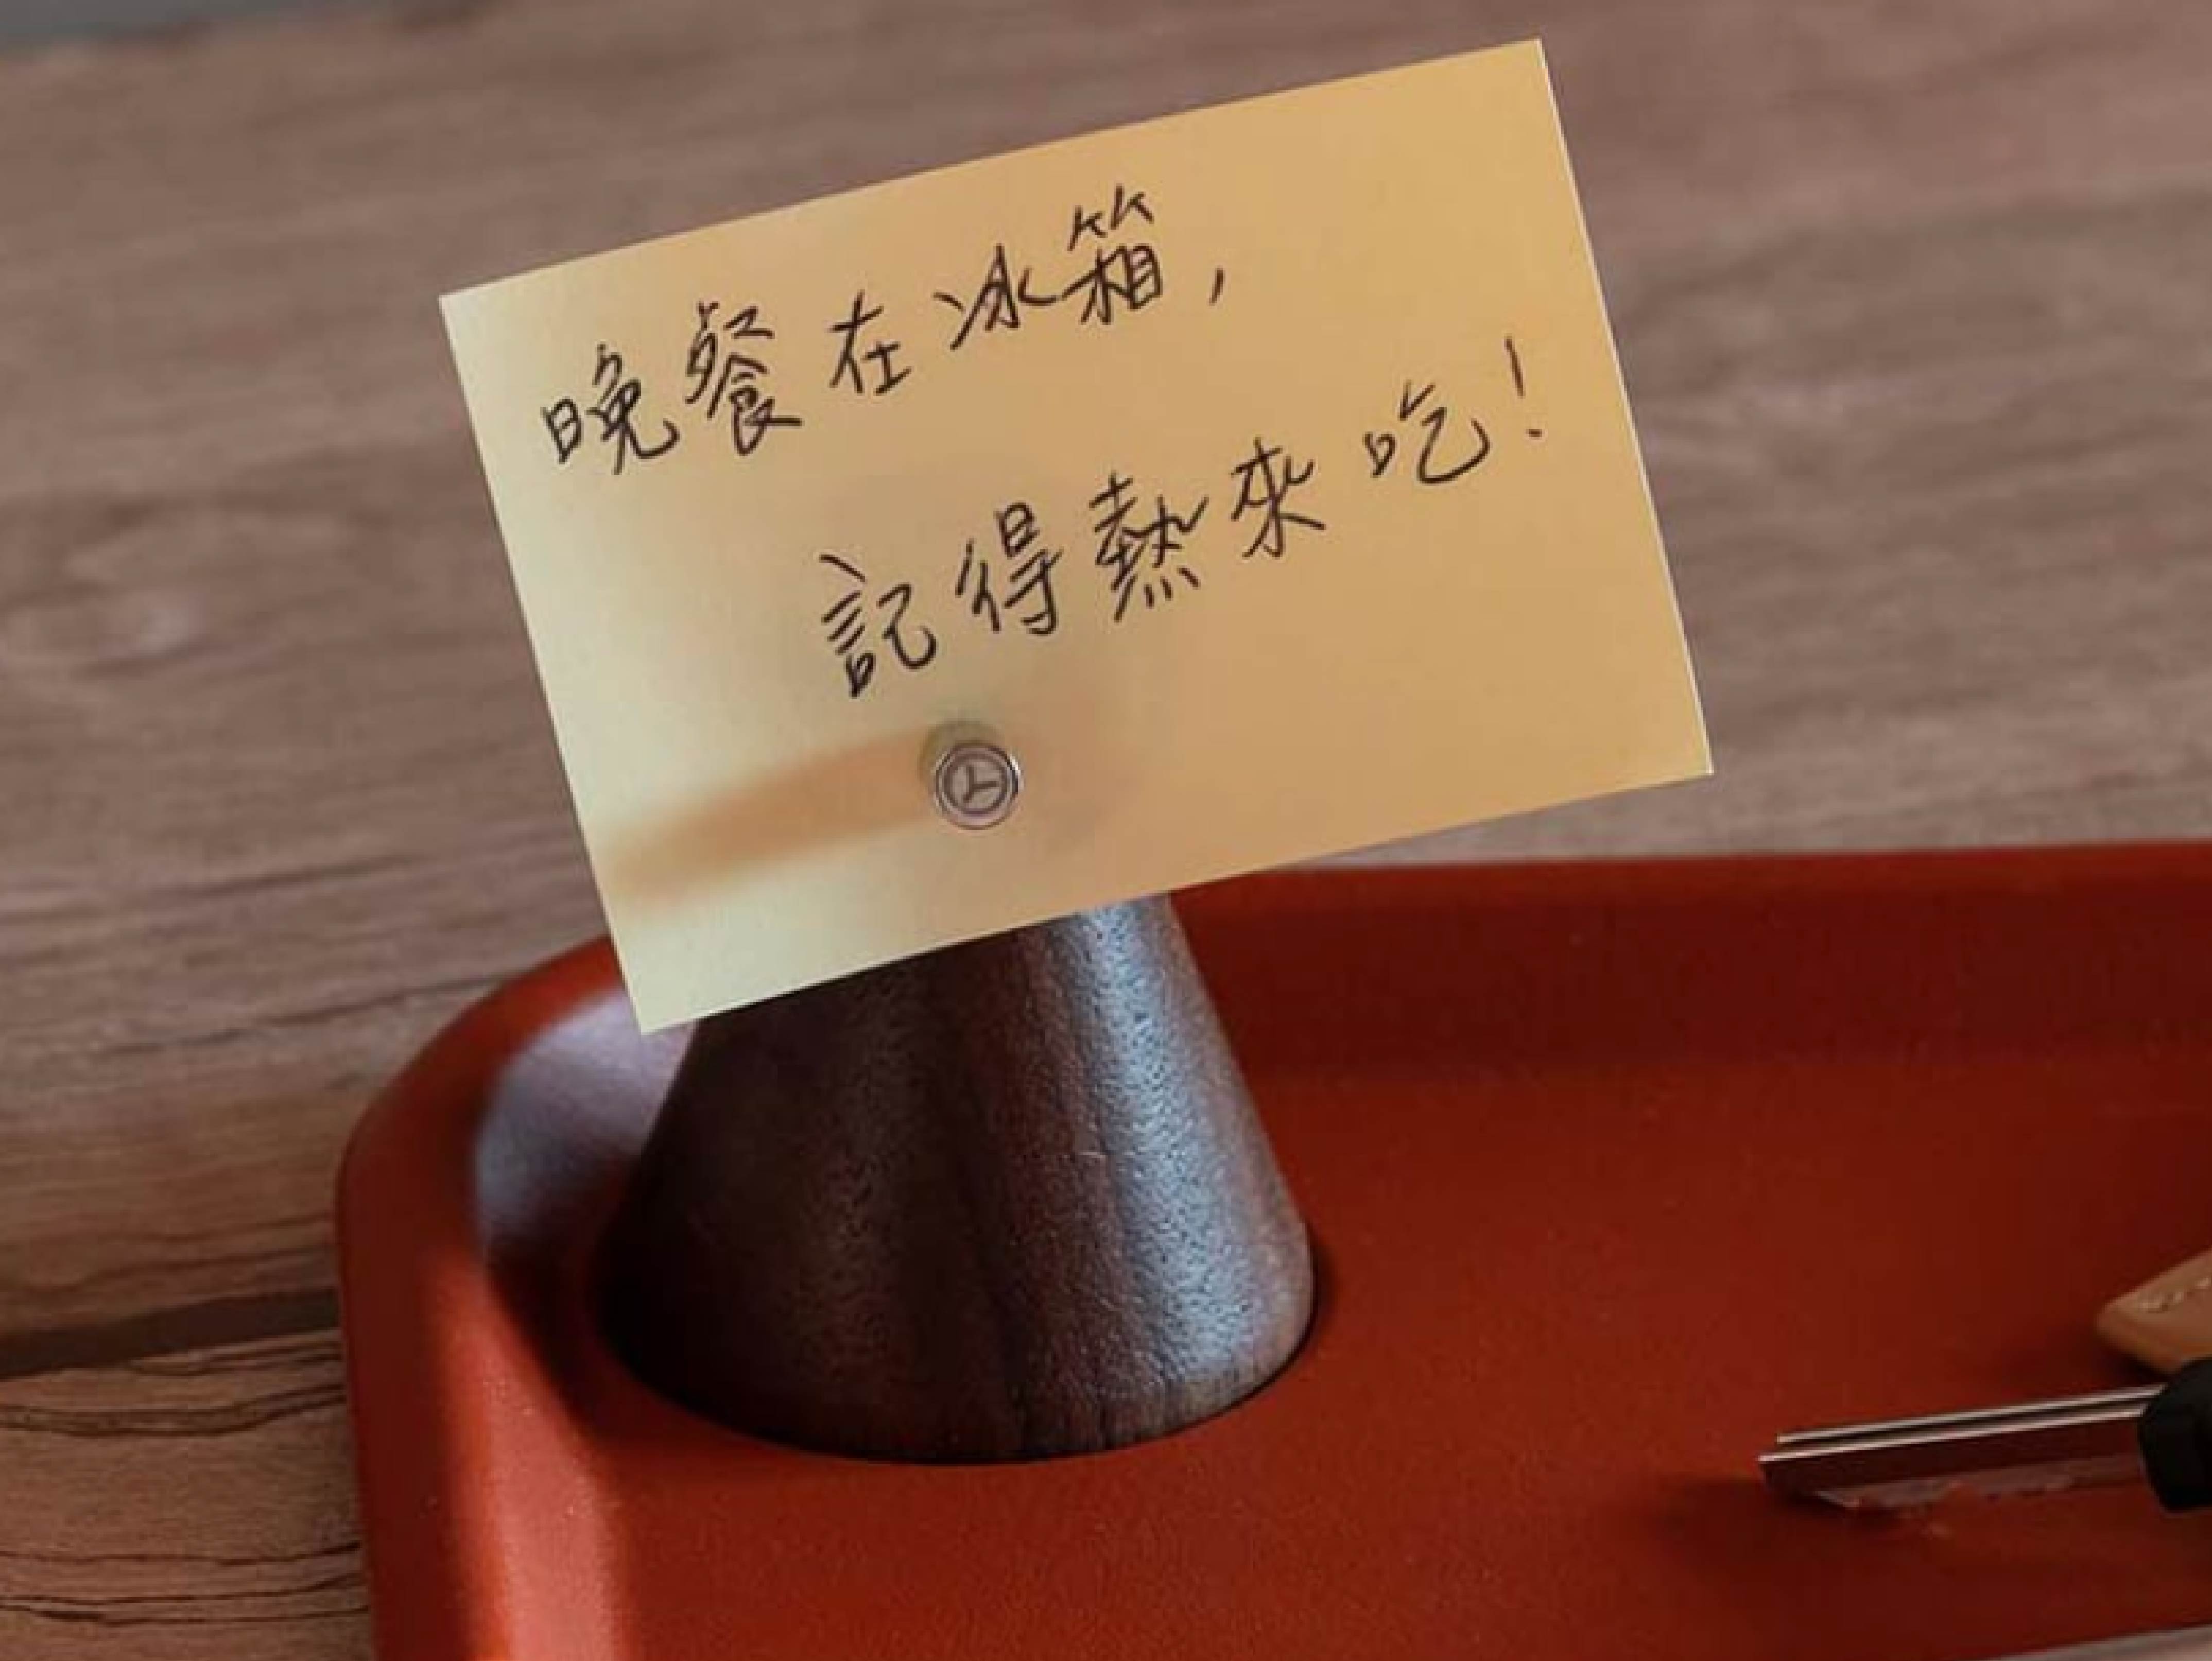 晚餐在冰箱,
記得熱來吃!